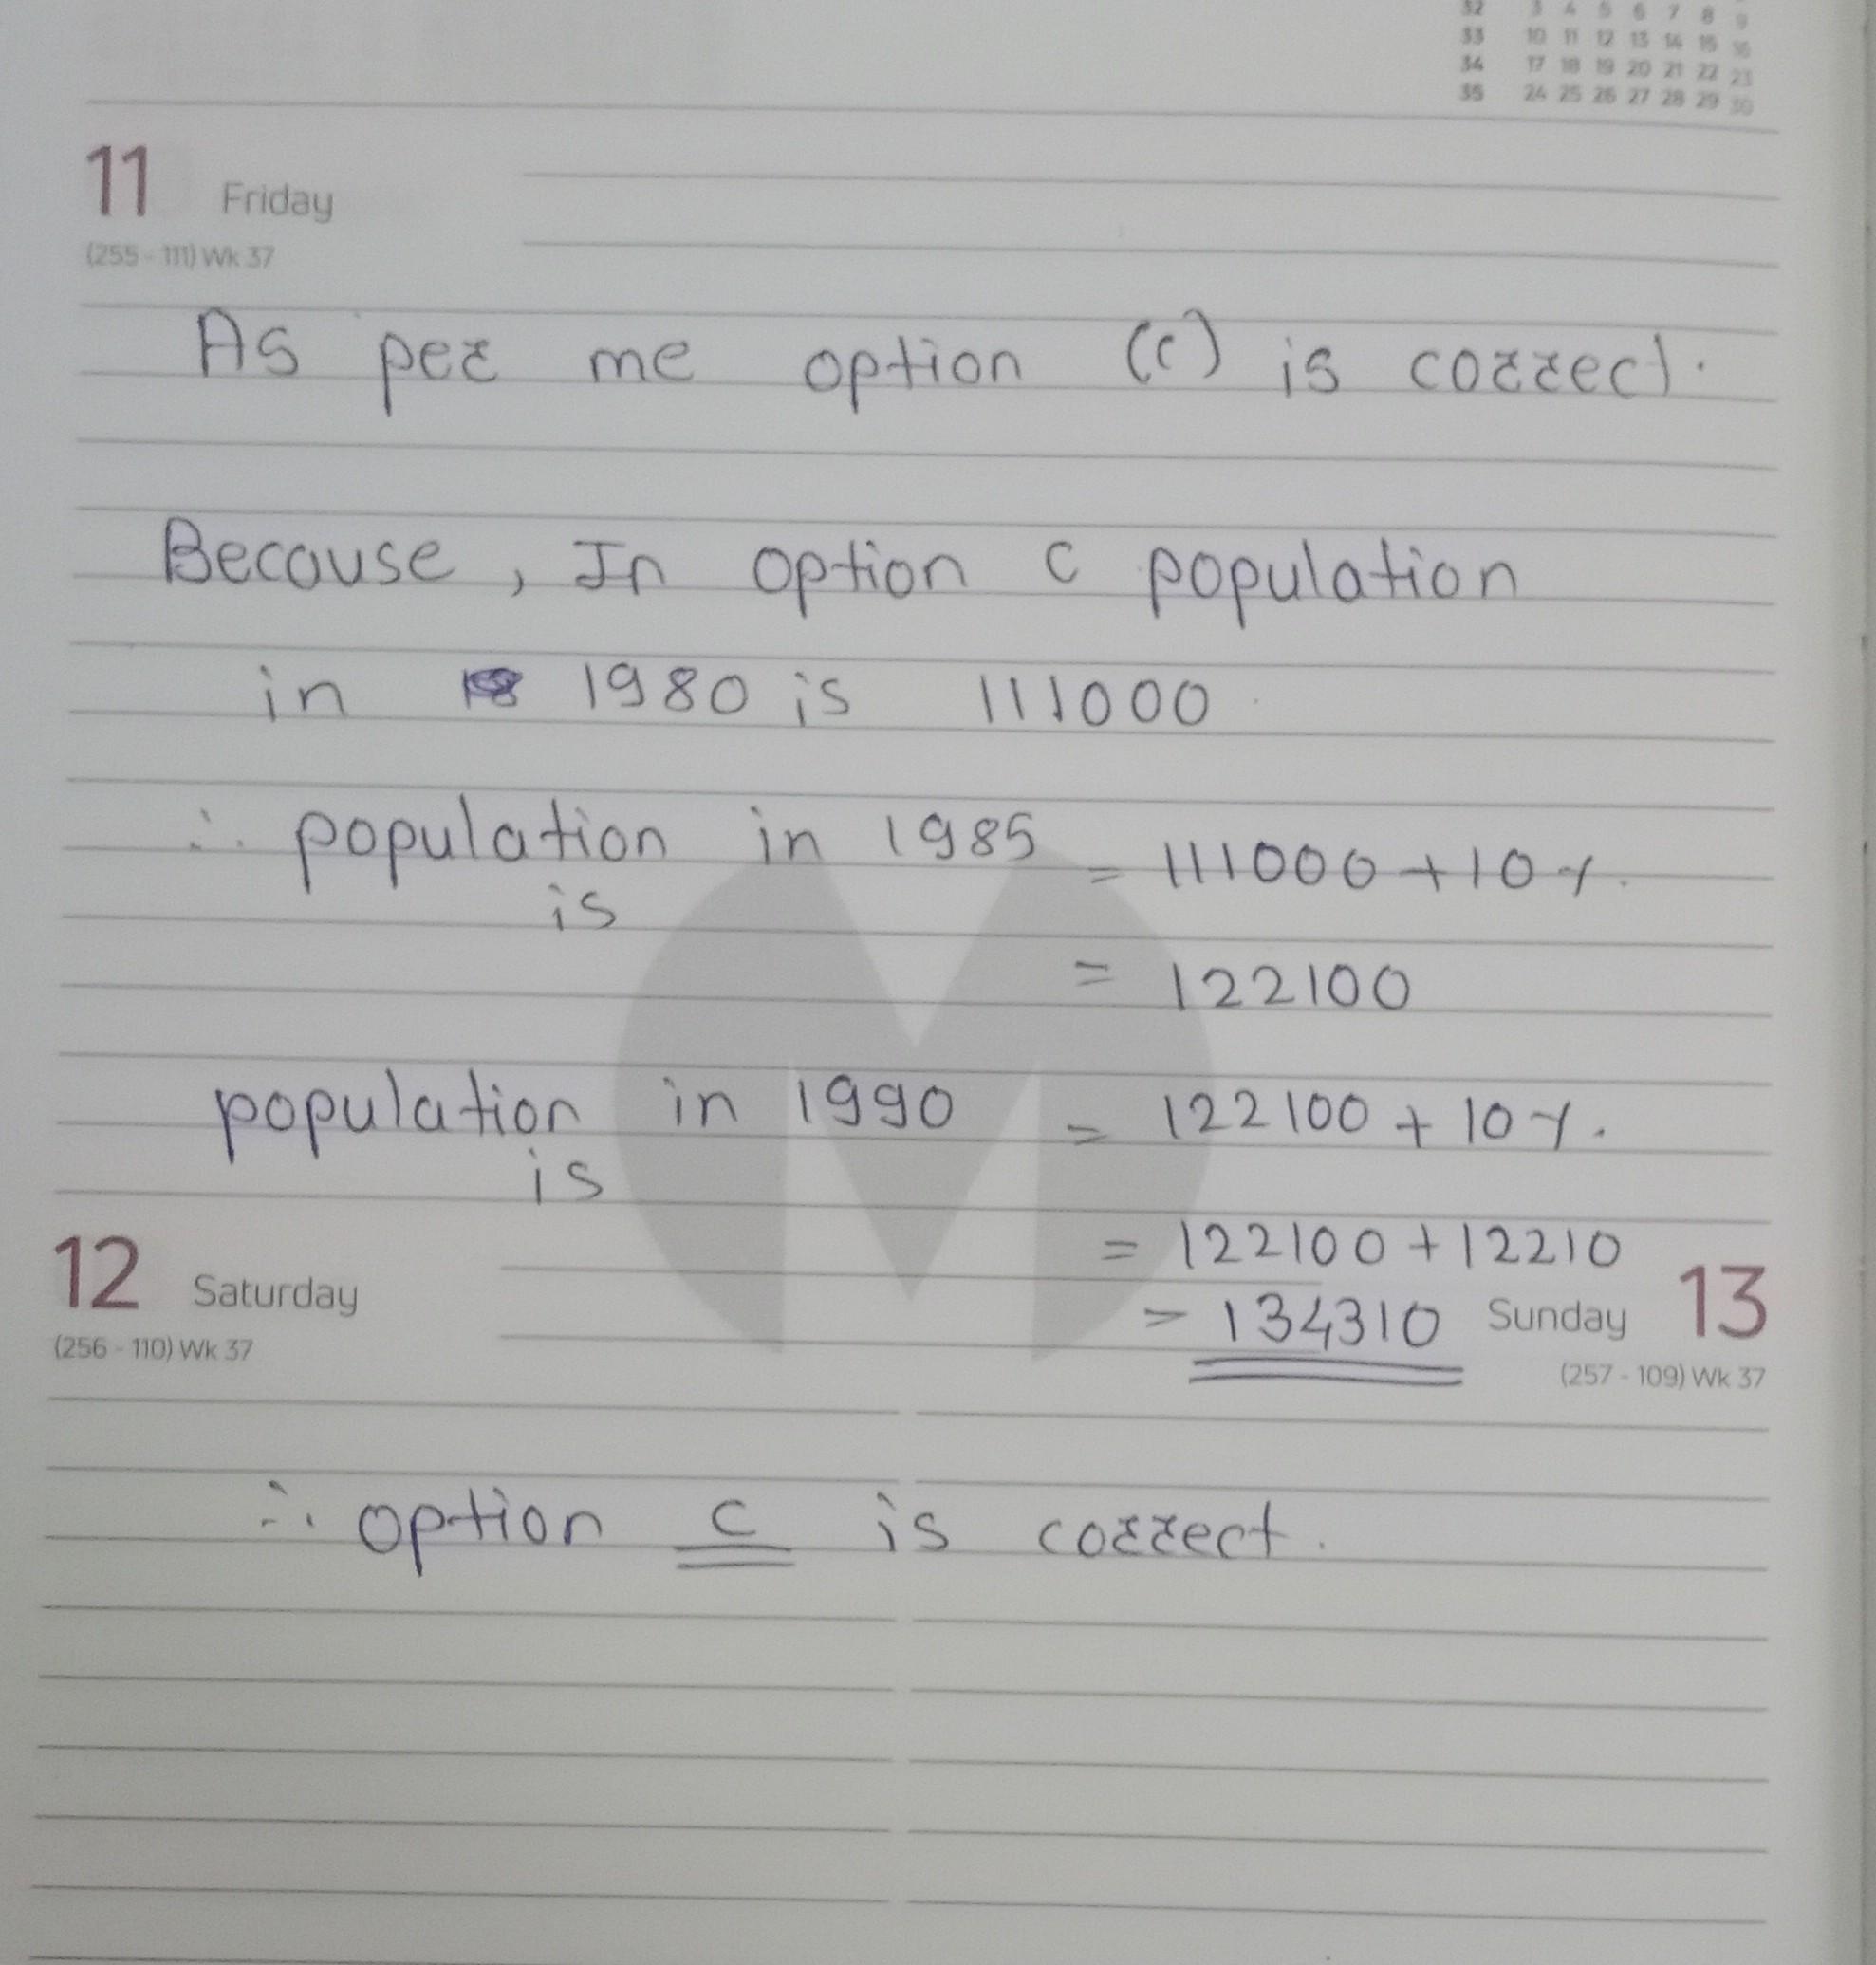 32 3 4 5 6 7 8 9
33 10 11 12 13 14 15 16
34 17 18 19 20 21 22 23
35 24 25 26 27 28 29 30
11 Friday
(255 - 111) Wk 37
As per me option (c) is correct.
Because, In option c population
in 1980 is 111000
∴ population in 1985 = 111000 + 10%.
is
= 122100
population in 1990 = 122100 + 10%.
is
= 122100 + 12210
12 Saturday = 134310 Sunday 13
(256 - 110) Wk 37 (257 - 109) Wk 37
∴ option c is correct.